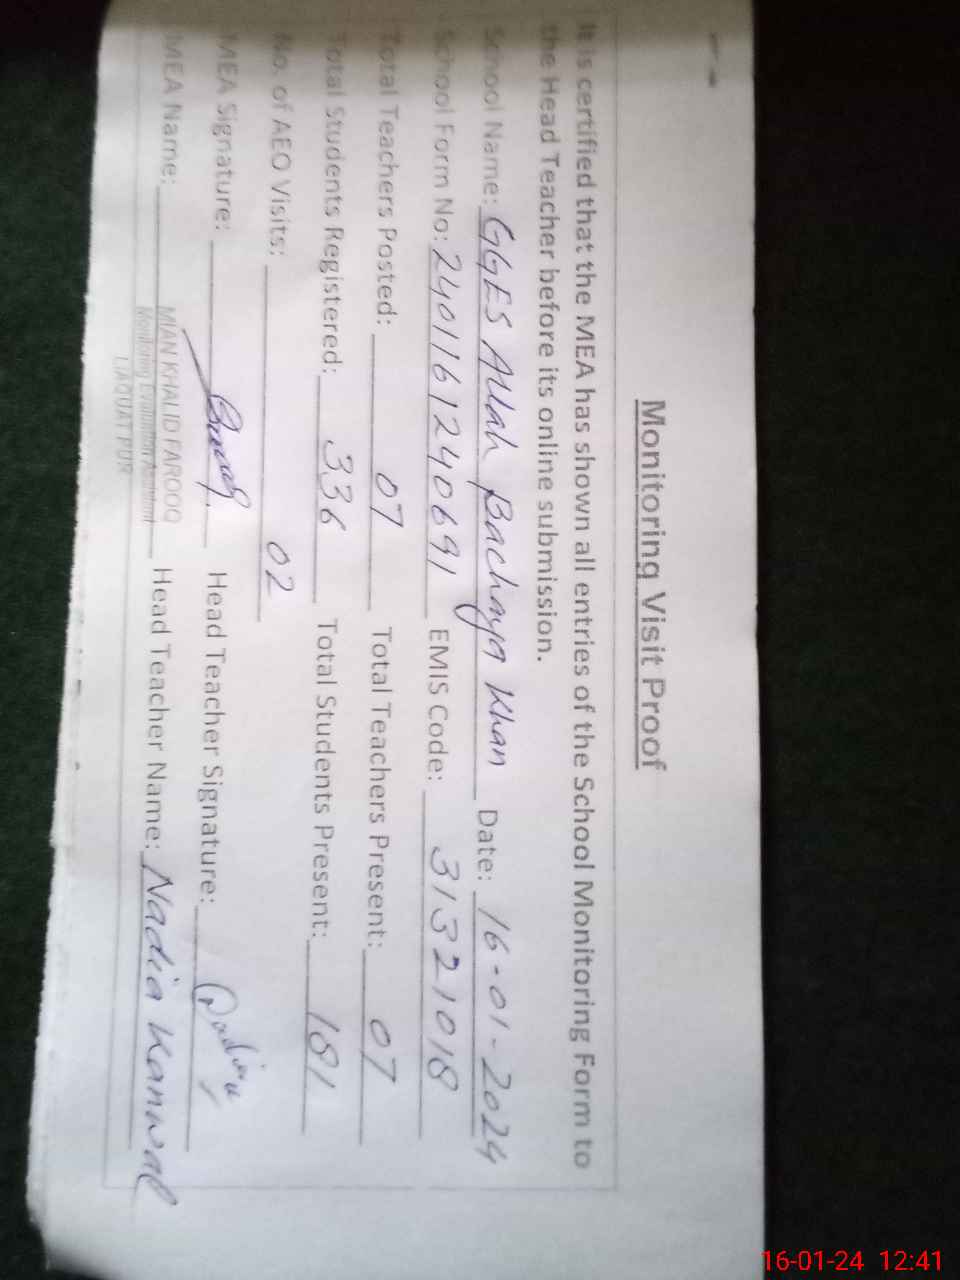 Monitoring Visit Proof
It is certified that the MEA has shown all entries of the School Monitoring Form to
the Head Teacher before its online submission.
School Name: GGES Allah Bachaya Khan Date: 16-01-2024
School Form No: 2401161240691 EMIS Code: 31321018
Total Teachers Posted: 07 Total Teachers Present: 07
Total Students Registered: 336 Total Students Present: 181
No. of AEO Visits: 02
MEA Signature: Head Teacher Signature:
MEA Name: MIAN KHALID FAROOQ Head Teacher Name: Nadia Kanwal
Monitoring Evaluation Assistant
LIAQUAT PUR
16-01-24 12:41